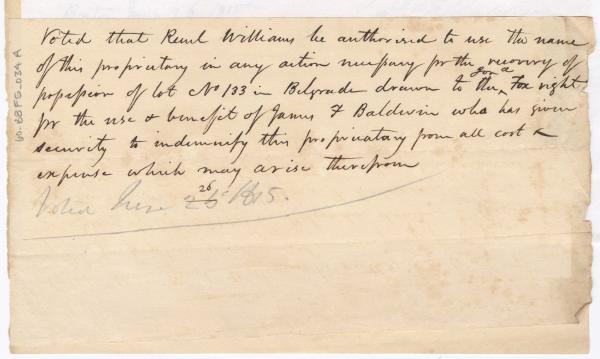 Voted that Reuel Williams be authorised to use the name
of this proprietary in any action necessary for the recovery of
possession of lot No 133 in Belgrade drawn to the Fox right
for the use & benefit of James F Baldwin who has given
security to indemnify this proprietary from all cost &
expense which may arise therefrom
Voted June 26 1815.
W-88FS-034 A